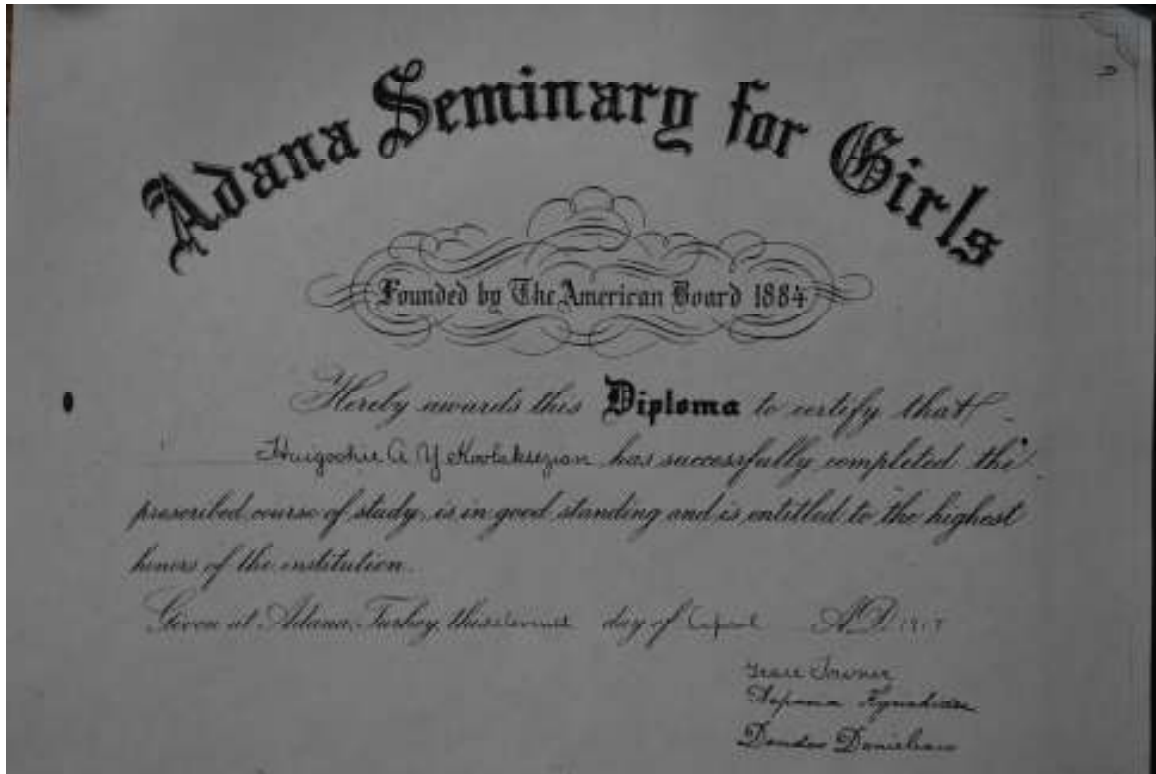 Adana Seminary for Girls
Founded by The American Board 1884
Hereby awards this Diploma to certify that
has successfully completed the
prescribed course of study, is in good standing and is entitled to the highest
honors of the institution.
Given at Adana, Turkey, this day of April A.D.
Grace Towner